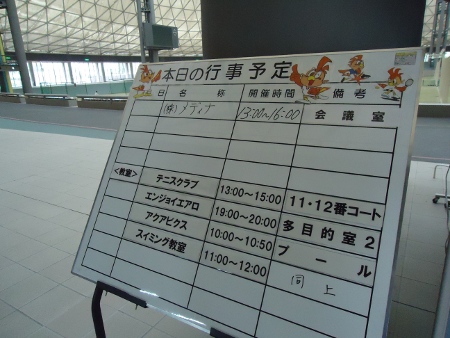 本日の行事予定
日 名 称 開催時間 備考
(株)メディナ 13:00~16:00 会議室
<教室>
テニスクラブ 13:00~15:00 11・12番コート
エンジョイエアロ 19:00~20:00 多目的室2
アクアビクス 10:00~10:50 プール
スイミング教室 11:00~12:00 同上